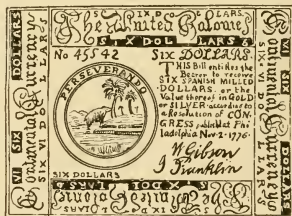 The United Colonies
SIX DOLLARS
No 45542
SIX DOLLARS.
THIS Bill entitles the
Bearer to receive
SIX SPANISH MILLED
DOLLARS, or the
Value thereof in GOLD
or SILVER according to
a Resolution of CONGRESS
published Philadelphia
Nov-2-1776.
PERSEVERANDO
W Gibson
J Franklin
SIX DOLLARS
Continental Currency
VI DOLLARS
Continental Currency
SIX DOLLARS
The United Colonies